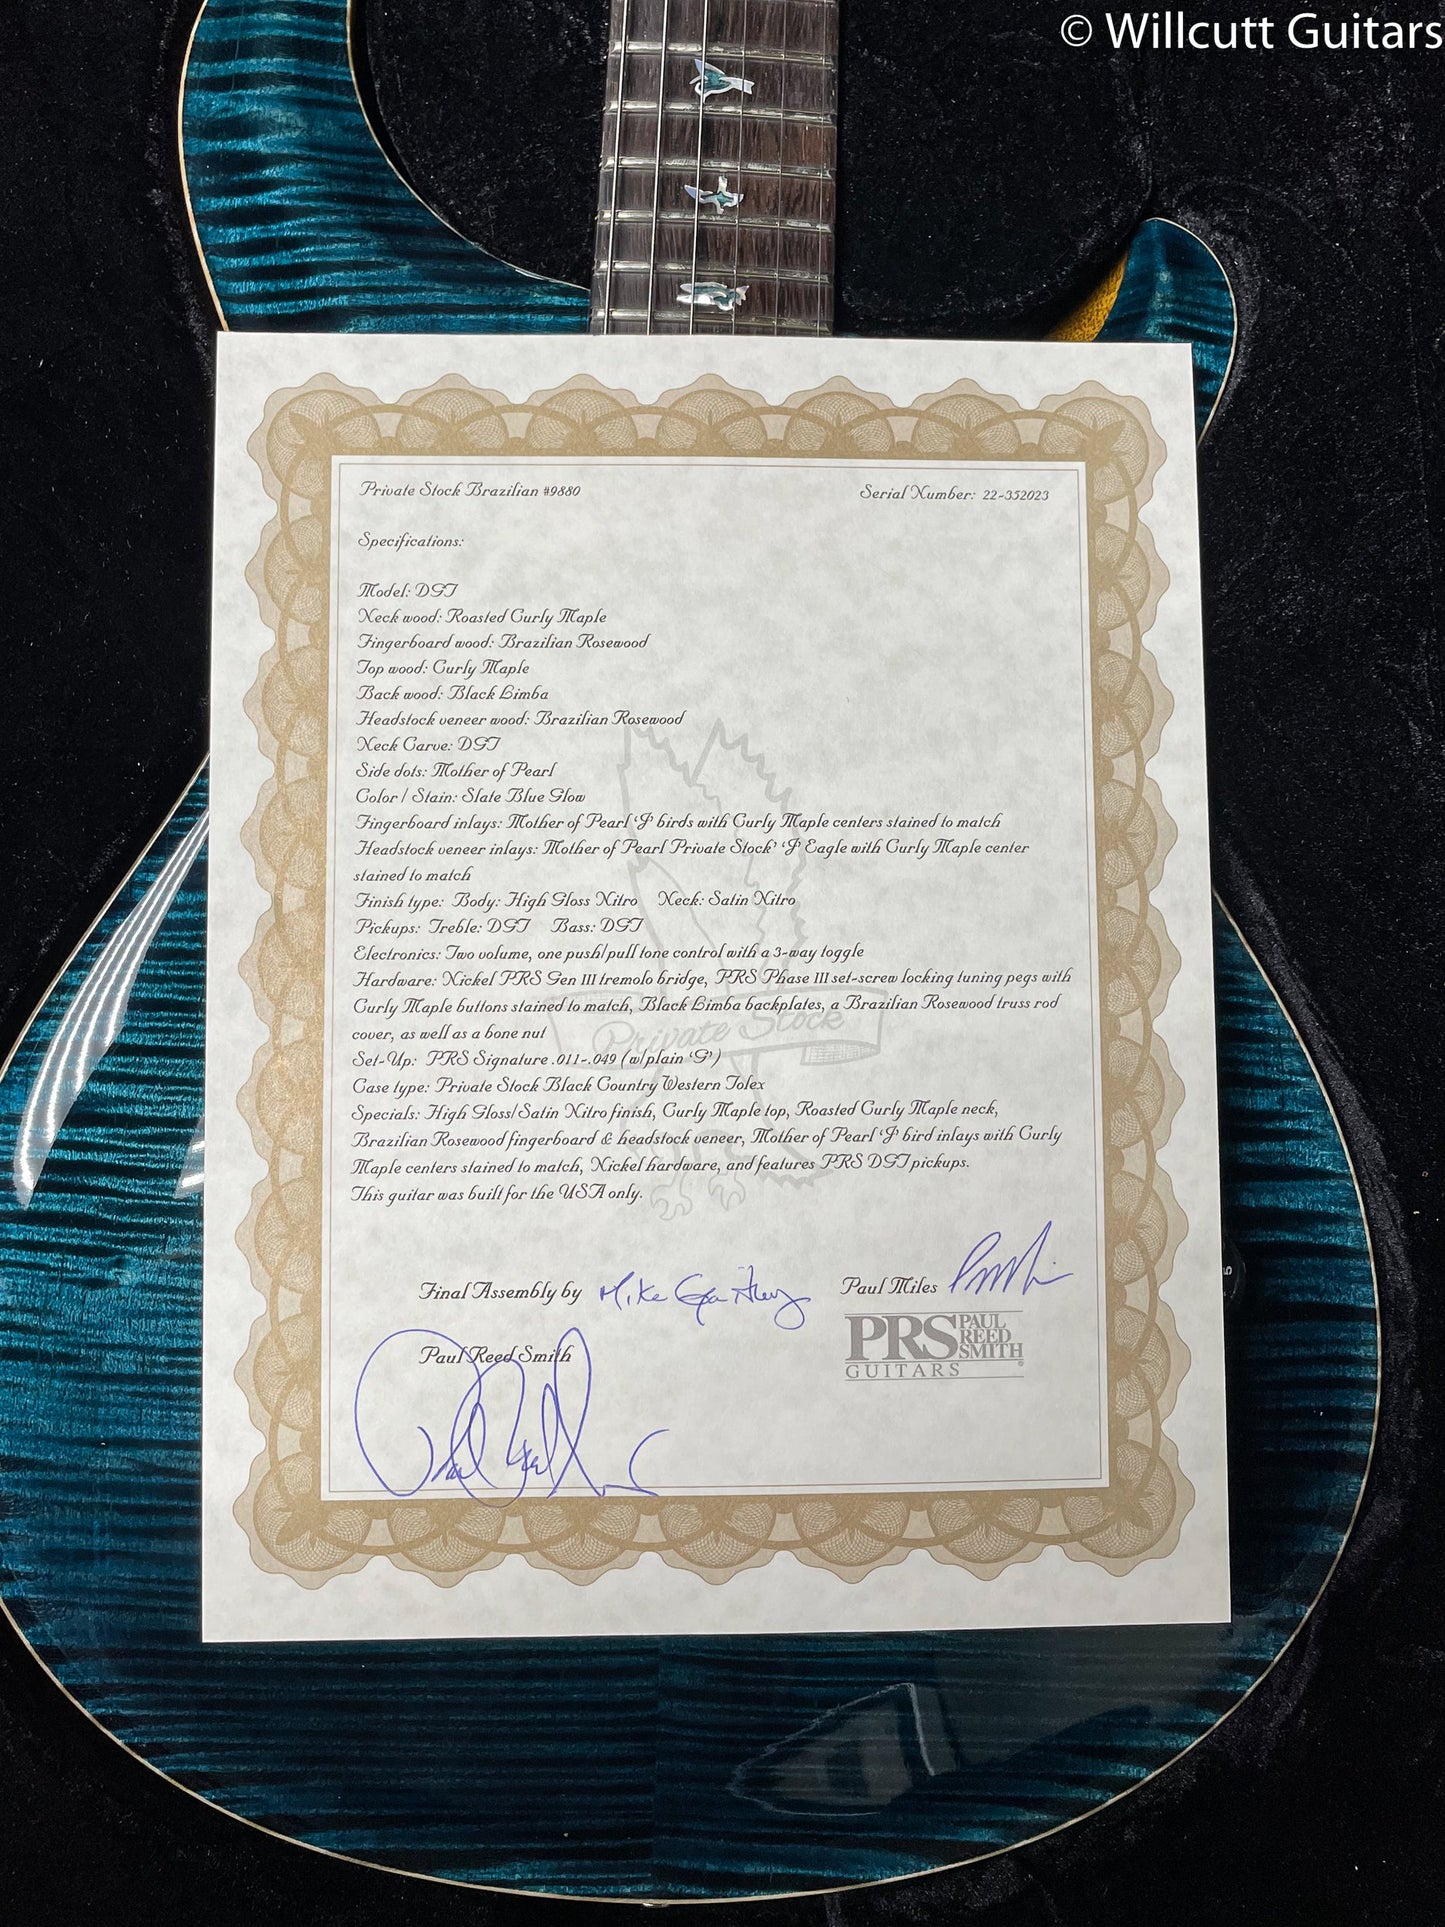 © Willcutt Guitars
Private Stock Brazilian #9880
Serial Number: 22-352023
Specifications:
Model: DGT
Neck wood: Roasted Curly Maple
Fingerboard wood: Brazilian Rosewood
Top wood: Curly Maple
Back wood: Black Limba
Headstock veneer wood: Brazilian Rosewood
Neck Carve: DGT
Side dots: Mother of Pearl
Color / Stain: Slate Blue Glow
Fingerboard inlays: Mother of Pearl 'J' birds with Curly Maple centers stained to match
Headstock veneer inlays: Mother of Pearl Private Stock' 'J' Eagle with Curly Maple center
stained to match
Finish type: Body: High Gloss Nitro Neck: Satin Nitro
Pickups: Treble: DGT Bass: DGT
Electronics: Two volume, one push/pull tone control with a 3-way toggle
Hardware: Nickel PRS Gen III tremolo bridge, PRS Phase III set-screw locking tuning pegs with
Curly Maple buttons stained to match, Black Limba backplates, a Brazilian Rosewood truss rod
cover, as well as a bone nut
Private Stock
Set-Up: PRS Signature .011-.049 (w/plain 'G')
Case type: Private Stock Black Country Western Tolex
Specials: High Gloss/Satin Nitro finish, Curly Maple top, Roasted Curly Maple neck,
Brazilian Rosewood fingerboard & headstock veneer, Mother of Pearl 'J' bird inlays with Curly
Maple centers stained to match, Nickel hardware, and features PRS DGT pickups.
This guitar was built for the USA only.
Final Assembly by Mike
Paul Miles
Paul Reed Smith
PRS PAUL
REED
SMITH
GUITARS
5